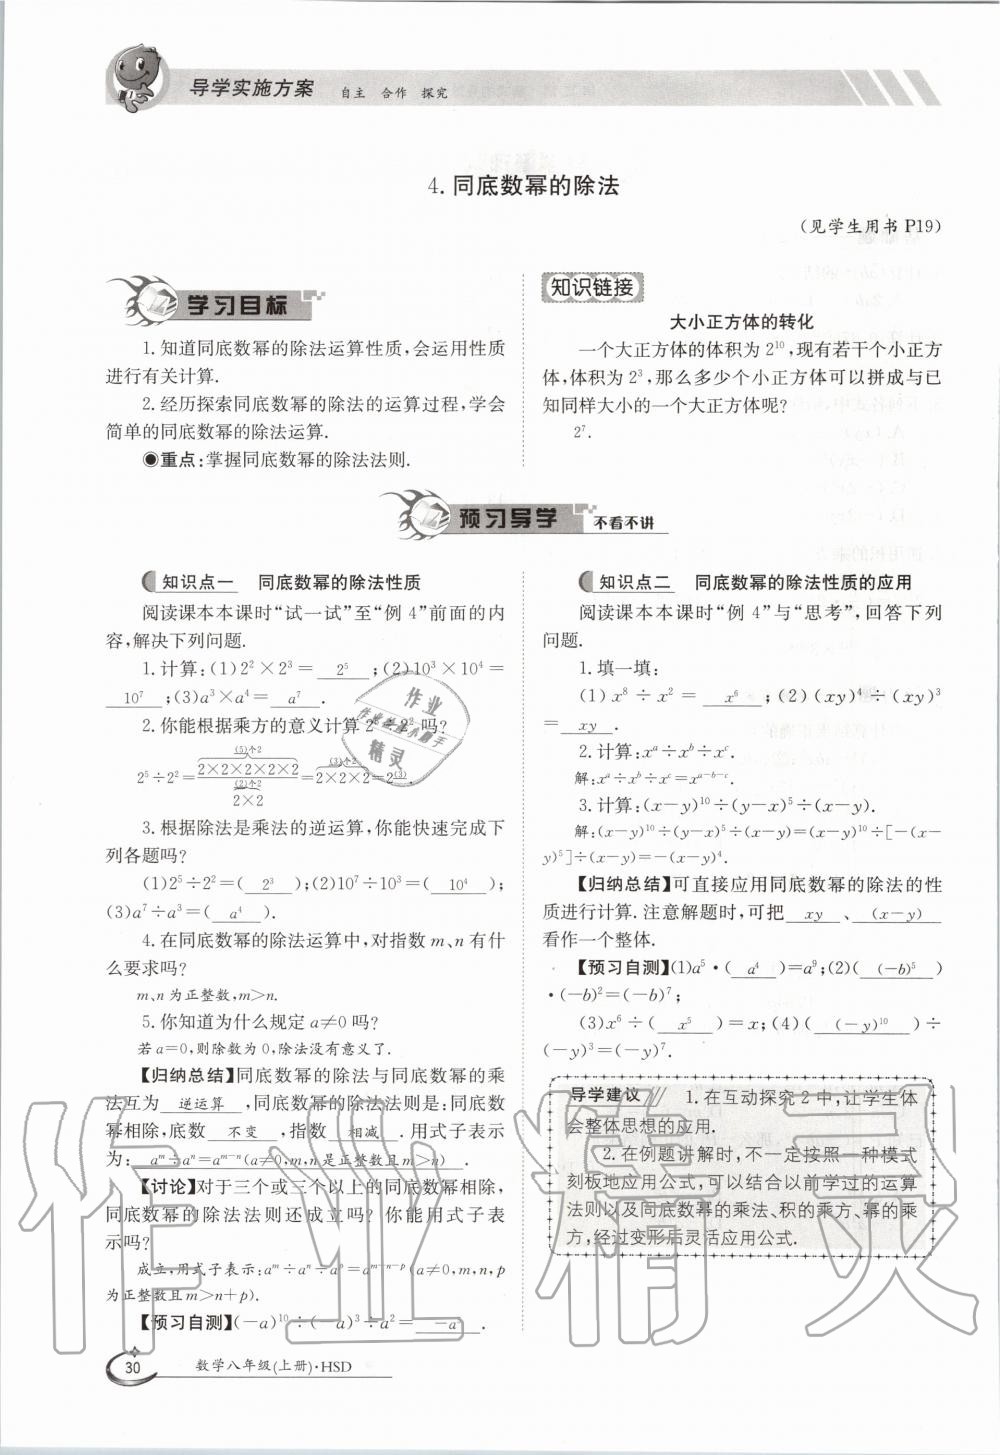 导学实施方案 自主 合作 探究
4. 同底数幂的除法
(见学生用书 P19)
学习目标
1. 知道同底数幂的除法运算性质,会运用性质
进行有关计算.
2. 经历探索同底数幂的除法的运算过程,学会
简单的同底数幂的除法运算.
◉重点:掌握同底数幂的除法法则.
知识链接
大小正方体的转化
一个大正方体的体积为 2¹⁰,现有若干个小正方
体,体积为 2³,那么多少个小正方体可以拼成与已
知同样大小的一个大正方体呢?
2⁷.
预习导学 不看不讲
知识点一 同底数幂的除法性质
阅读课本本课时“试一试”至“例 4”前面的内
容,解决下列问题.
1. 计算:(1)2²×2³= 2⁵ ;(2)10³×10⁴=
10⁷ ;(3)a³×a⁴= a⁷ .
2. 你能根据乘方的意义计算 2⁵÷2² 吗?
(5)个2 (3)个2
2⁵÷2²=2×2×2×2×2=2×2×2=2⁽³⁾.
(2)个2
2×2
3. 根据除法是乘法的逆运算,你能快速完成下
列各题吗?
(1)2⁵÷2²=( 2³ );(2)10⁷÷10³=( 10⁴ );
(3)a⁷÷a³=( a⁴ ).
4. 在同底数幂的除法运算中,对指数 m、n 有什
么要求吗?
m、n 为正整数,m>n.
5. 你知道为什么规定 a≠0 吗?
若 a=0,则除数为 0,除法没有意义了.
【归纳总结】同底数幂的除法与同底数幂的乘
法互为 逆运算 ,同底数幂的除法法则是:同底数
幂相除,底数 不变 ,指数 相减 .用式子表示
为: aᵐ÷aⁿ=aᵐ⁻ⁿ(a≠0,m,n是正整数且m>n) .
【讨论】对于三个或三个以上的同底数幂相除,
同底数幂的除法法则还成立吗? 你能用式子表
示吗?
成立,用式子表示:aᵐ÷aⁿ÷aᵖ=aᵐ⁻ⁿ⁻ᵖ(a≠0,m,n,p
为正整数且 m>n+p).
【预习自测】(-a)¹⁰÷(-a)³÷a²= -a⁵ .
知识点二 同底数幂的除法性质的应用
阅读课本本课时“例 4”与“思考”,回答下列
问题.
1. 填一填:
(1) x⁸÷x²= x⁶ ;(2)(xy)⁴÷(xy)³
= xy .
2. 计算:xᵃ÷xᵇ÷xᶜ.
解:xᵃ÷xᵇ÷xᶜ=xᵃ⁻ᵇ⁻ᶜ.
3. 计算:(x-y)¹⁰÷(y-x)⁵÷(x-y).
解:(x-y)¹⁰÷(y-x)⁵÷(x-y)=(x-y)¹⁰÷[-(x-
y)⁵]÷(x-y)=-(x-y)⁴.
【归纳总结】可直接应用同底数幂的除法的性
质进行计算. 注意解题时,可把 xy 、 (x-y)
看作一个整体.
【预习自测】(1)a⁵·( a⁴ )=a⁹;(2)( (-b)⁵ )
·(-b)²=(-b)⁷;
(3)x⁶÷( x⁵ )=x;(4)( (-y)¹⁰ )÷
(-y)³=(-y)⁷.
导学建议 1. 在互动探究 2 中,让学生体
会整体思想的应用.
2. 在例题讲解时,不一定按照一种模式
刻板地应用公式,可以结合以前学过的运算
法则以及同底数幂的乘法、积的乘方、幂的乘
方,经过变形后灵活应用公式.
30 数学八年级(上册)·HSD
作业精灵